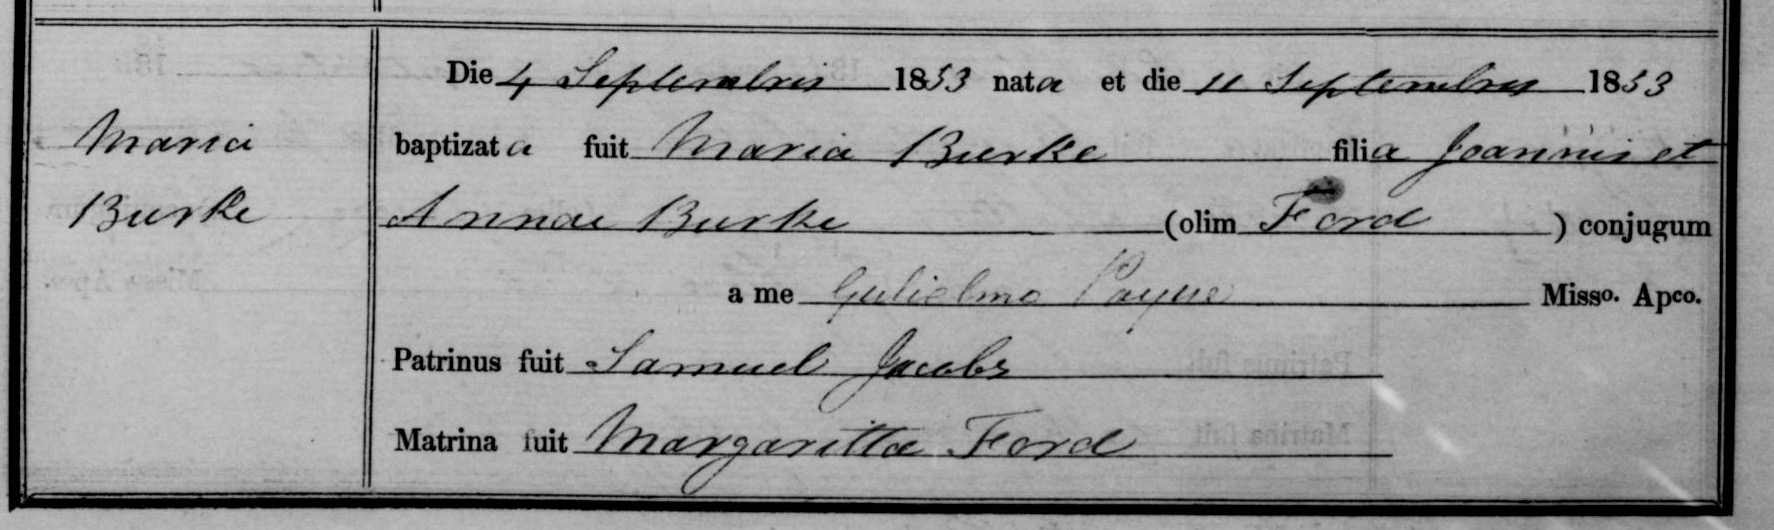 Die 4 Septembris 1853 nata et die 11 Septembris 1853
Maria
baptizata fuit Maria Burke filia Joannis et
Burke
Annae Burke (olim Ford) conjugum
a me Gulielmo Payne Misso. Apco.
Patrinus fuit Samuel Jacobs
Matrina fuit Margaritta Ford